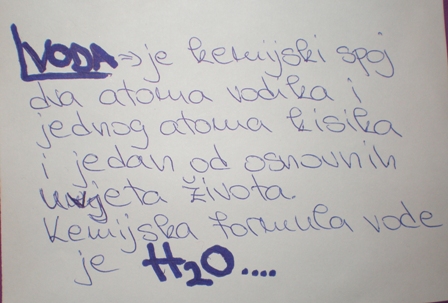 VODA → je kemijski spoj
dva atoma vodika i
jednog atoma kisika
i jedan od osnovnih
uvjeta života.
Kemijska formula vode
je H2O....